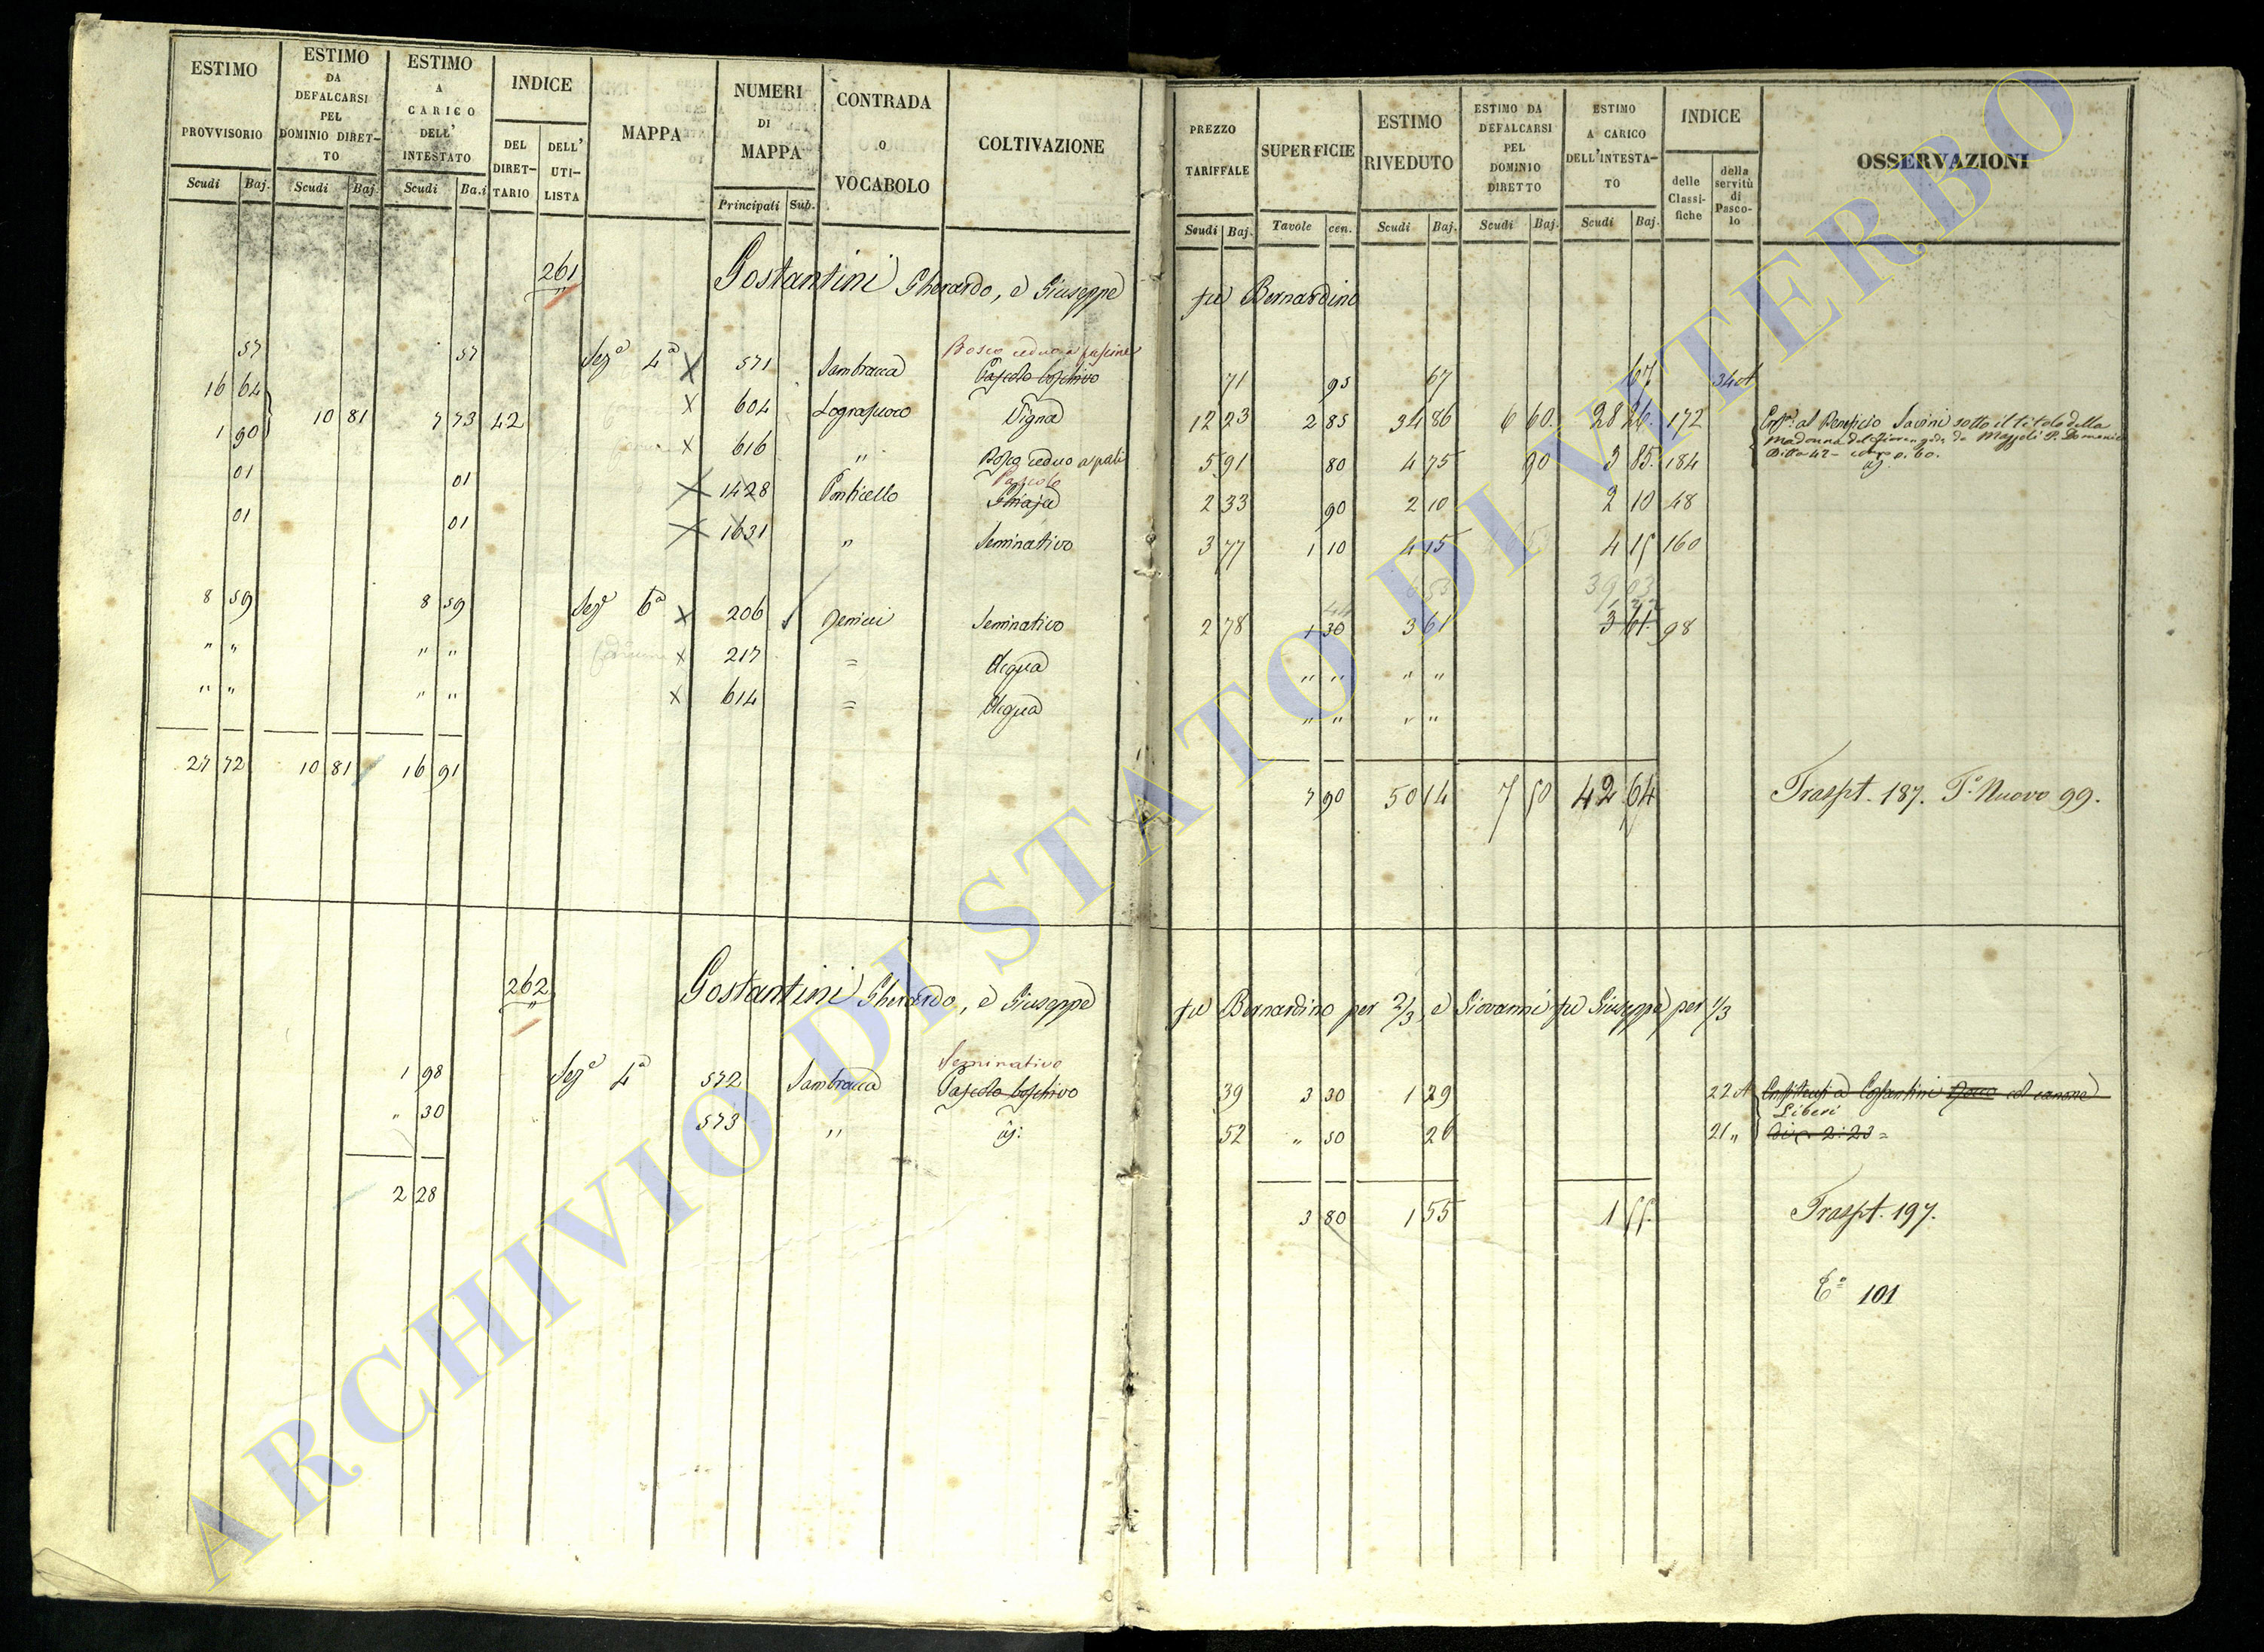 ESTIMO PROVVISORIO
ESTIMO DA DEFALCARSI PEL DOMINIO DIRET-TO
ESTIMO A CARICO DELL' INTESTATO
INDICE
DEL DIRET-TARIO
DELL' UTI-LISTA
MAPPA
NUMERI DI MAPPA
CONTRADA O VOCABOLO
COLTIVAZIONE
Scudi Baj. Scudi Baj. Scudi Ba.i Principali Sub.
261 Gostantini Gherardo, e Giuseppe
Bosco ceduo a fascine
57 57 Sez.e 4a X 571 Sambracca Pascolo boschivo
16 64 10 81 7 73 42 X 604 Lograsuoco Vigna
1 90 X 616 " Bosco ceduo a pali
Pascolo
01 01 X 1428 Ponticello Ghiaja
01 01 X 1631 " Seminativo
8 59 8 59 Sez.e 6a X 206 Seminativo
" " " " X 217 = Acqua
" " " " X 614 = Acqua
27 72 10 81 16 91
262 Gostantini Gherardo, e Giuseppe
Seminativo
1 98 Sez.e 4a 572 Sambracca Pascolo boschivo
" 30 573 " 
2 28
PREZZO TARIFFALE
SUPERFICIE
ESTIMO RIVEDUTO
ESTIMO DA DEFALCARSI PEL DOMINIO DIRETTO
ESTIMO A CARICO DELL'INTESTA-TO
INDICE
delle Classi-fiche
della servitù di Pasco-lo
OSSERVAZIONI
Scudi Baj. Tavole cen. Scudi Baj. Scudi Baj. Scudi Baj.
fu Bernardino
71 95 67 67 34
12 23 2 85 34 86 6 60 28 26 172 al Benefizio Savini sotto il titolo della
Madonna del da Mazzoli P. Domenico
5 91 80 4 75 90 3 85 184 Ditta 42
2 33 90 2 10 2 10 48
3 77 1 10 4 15 4 15 160
39 03
2 78 1 30 3 61 3 61 98
" " " "
" " " "
7 90 50 14 7 50 42 64 Traspt. 187. T.o Nuovo 99.
fu Bernardino per 2/3, e Giovanni fu Giuseppe per 1/3
39 3 30 1 29 22 Enfiteusi a Costantini col canone
Liberi
52 " 50 26 21 " di 2:23 =
3 80 1 55 1 55 Traspt. 197.
101
ARCHIVIO DI STATO DI VITERBO